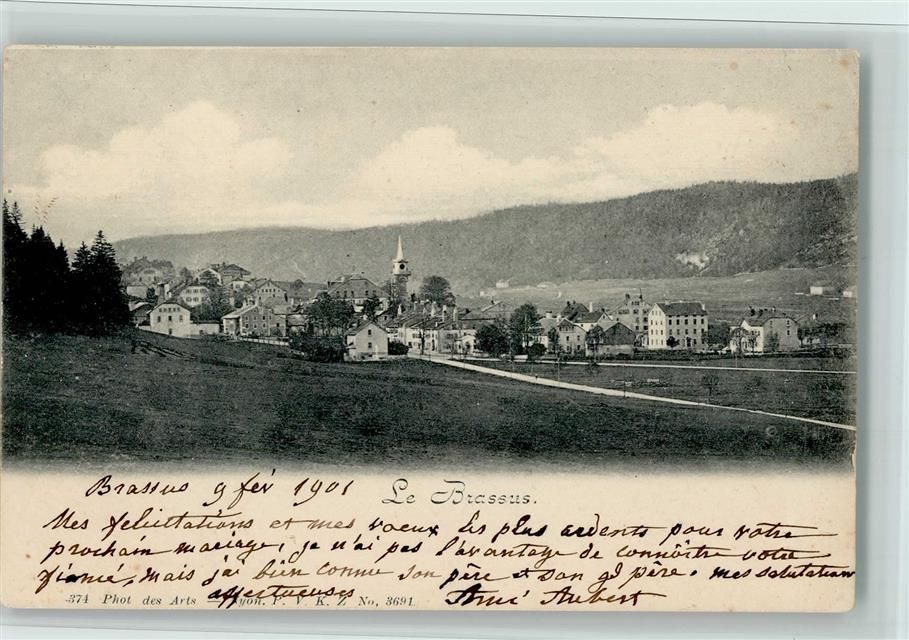 Brassus 9 fév 1901 Le Brassus.
Mes felicitations et mes voeux les plus ardents pour votre
prochain mariage, je n'ai pas l'avantage de connôitre votre
fiancé, mais j'ai bien connu son père et son gd père. mes salutation
affectueuses Aimé Aubert
374 Phot des Arts — Nyon. P. V. K. Z No, 3691